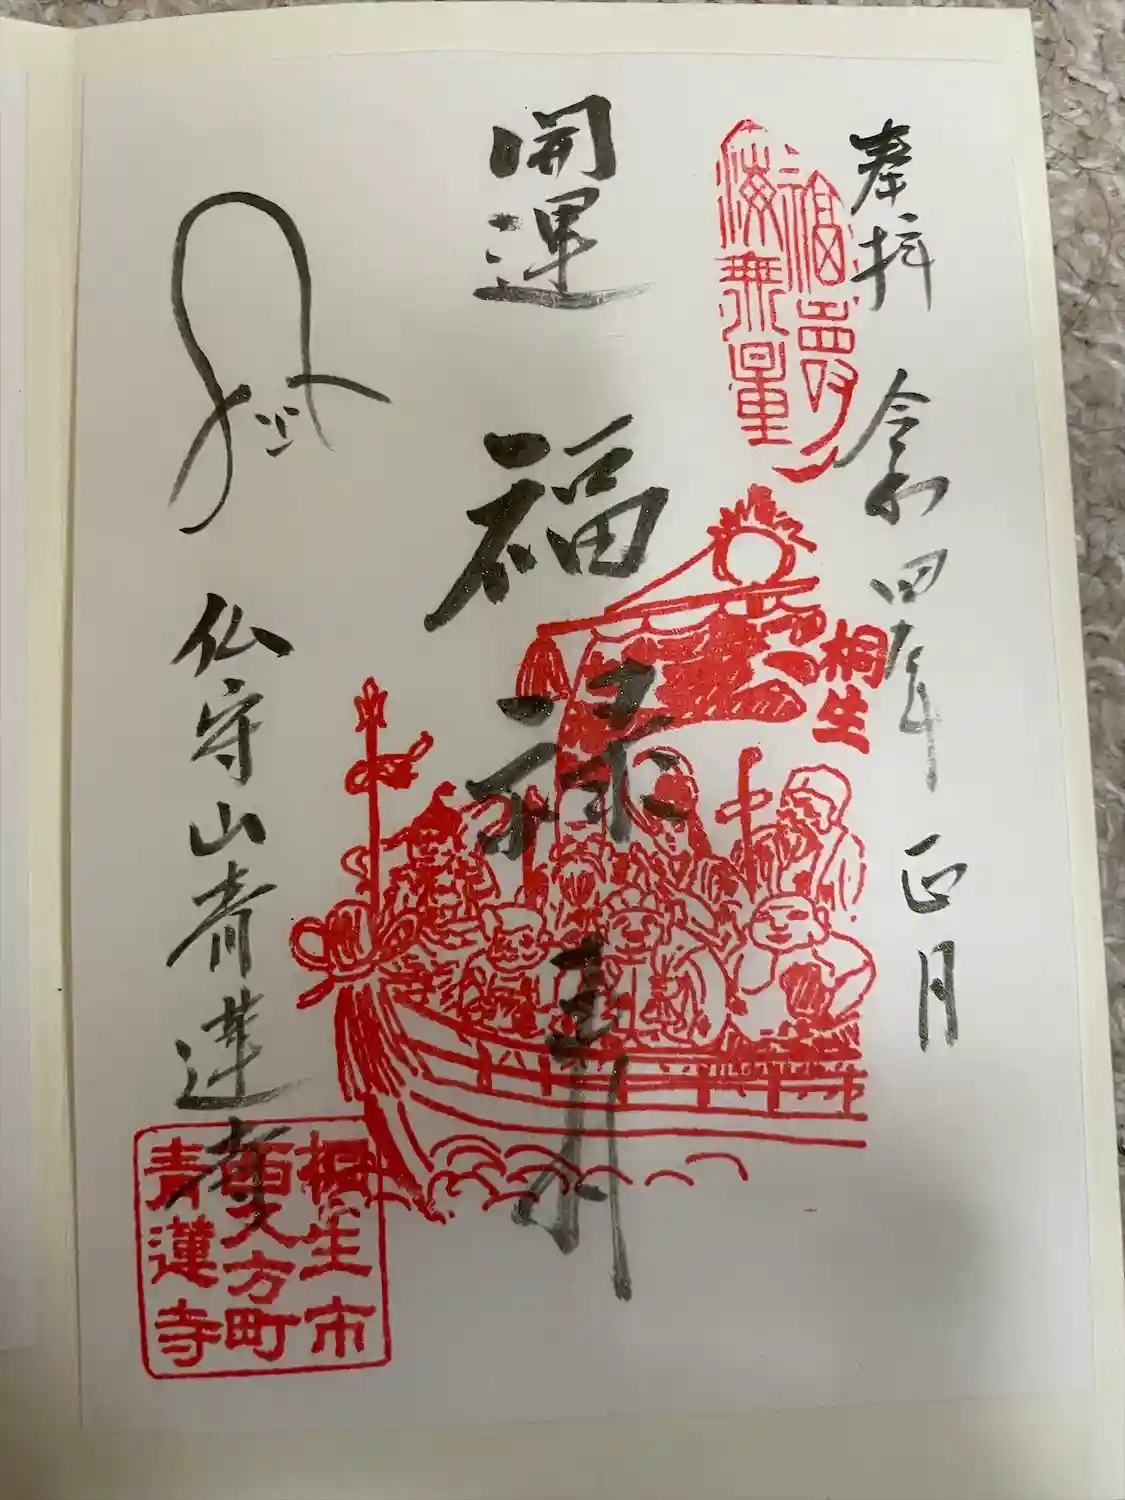 奉拝 令和四年正月
福聚
海無量
桐生
開運 福禄寿
仏守山青蓮寺
桐生市
西久方町
青蓮寺